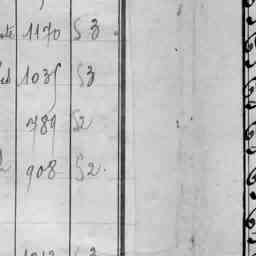 1170 S3.
1035 S3
789 S2
908 S2.